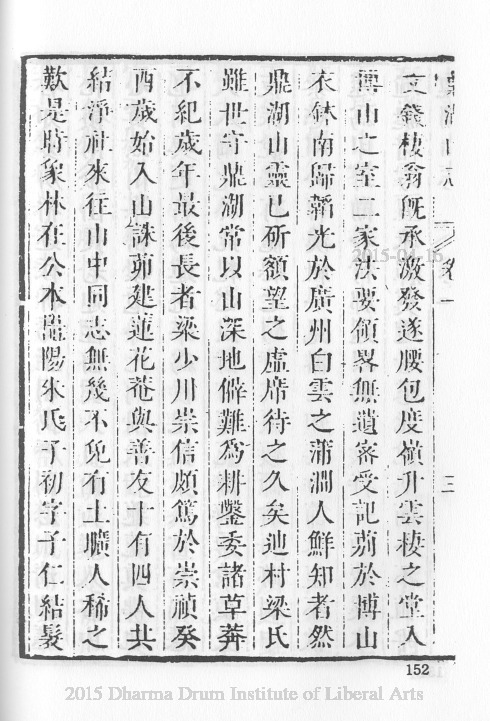 鼎湖山志
卷一
三
文錢棲翁旣承激發遂腰包度嶺升雲棲之堂入
博山之室二家法要領畧無遺密受記莂於博山
衣鉢南歸韜光於廣州白雲之蒲澗人鮮知者然
鼎湖山靈已斫額望之虛席待之久矣迪村梁氏
雖世守鼎湖常以山深地僻難爲耕鑿委諸草莽
不紀歲年最後長者梁少川崇信頗篤於崇禎癸
酉歲始入山誅茆建蓮花菴與善友十有四人共
結淨社來往山中同志無幾不免有土曠人稀之
歎是時象林在公本 陽朱氏子初字子仁結髮
152
2015-01-16
2015 Dharma Drum Institute of Liberal Arts